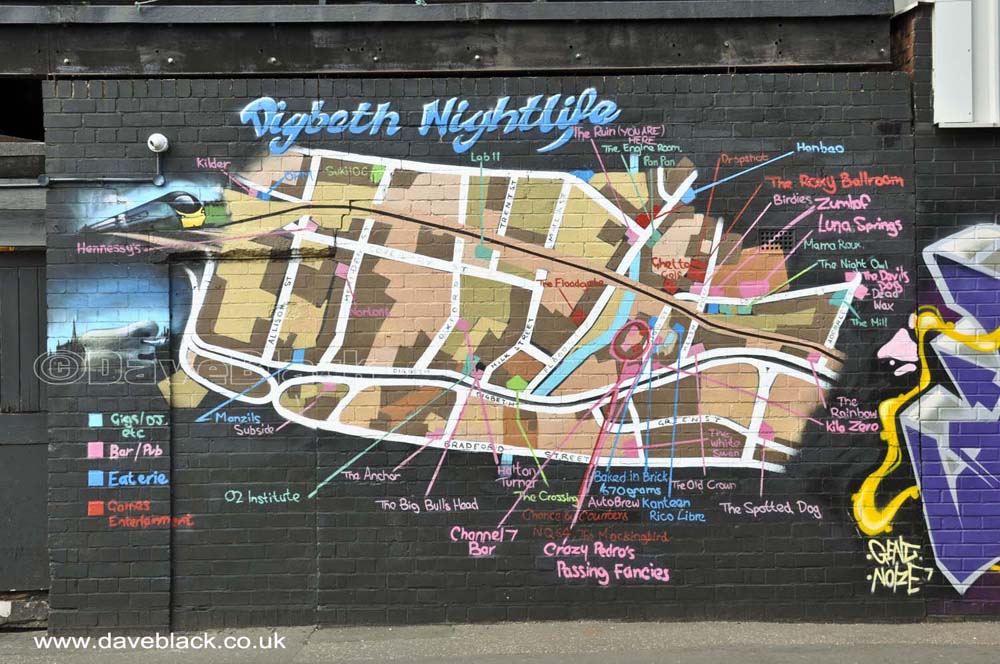 Digbeth Nightlife
The Ruin (YOU ARE)
HERE
The Engine Room
Pan Pan
Lab 11
Dropshot
Hanbao
Kilder
Suki10C
The Roxy Ballroom
Birdies
Zumhof
Luna Springs
Hennessy's
Mama Roux.
The Night Owl
Ghetto
Golf
The Devil's
Dog
Dead
Wax
The Mill
The Floodgate
Nortons
TRENT ST
ALLISON ST
OXFORD ST
MILK STREET
DIGBETH
DIGBETH
GREEN ST
BRADFORD STREET
© DaveBlack
Gigs/DJ
etc
Bar/Pub
Eaterie
Games
Entertainment
Manzils
Subside
The Anchor
O2 Institute
The Big Bulls Head
Halton
Turner
The Crossing
Channel 7
Bar
Baked in Brick
670grams
AutoBrew Kanteen
Rico Libre
Chance & Counters
NQ64 The Mockingbird
Crazy Pedro's
Passing Fancies
The Old Crown
The
White
Swan
The Spotted Dog
The
Rainbow
Kilo Zero
GENT
NOIZE
www.daveblack.co.uk